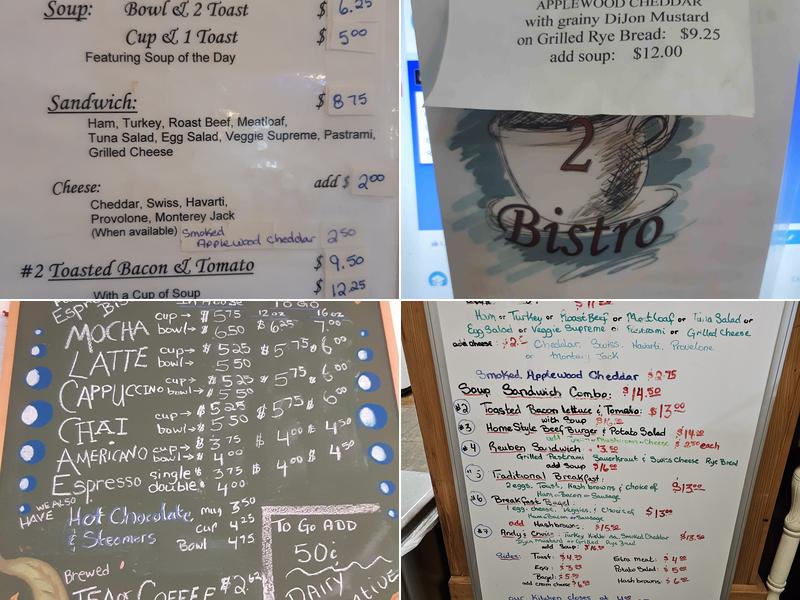 Soup: Bowl & 2 Toast $ 6.25
Cup & 1 Toast $ 5.00
Featuring Soup of the Day
Sandwich: $ 8.75
Ham, Turkey, Roast Beef, Meatloaf,
Tuna Salad, Egg Salad, Veggie Supreme, Pastrami,
Grilled Cheese
Cheese: add $ 2.00
Cheddar, Swiss, Havarti,
Provolone, Monterey Jack
(When available) Smoked Applewood Cheddar 2.50
#2 Toasted Bacon & Tomato $ 9.50
With a Cup of Soup $ 12.25
APPLEWOOD CHEDDAR
with grainy DiJon Mustard
on Grilled Rye Bread: $9.25
add soup: $12.00
2
Bistro
MOCHA cup→ $ 5.75 $ 6.25 7.00
bowl→ 6.50
LATTE cup→ $ 5.25 $ 5.75 $ 6.00
bowl→ 5.50
CAPPUCCINO cup→ $ 5.25 $ 5.75 $ 6.00
bowl→ 5.50
CHAI cup→ $ 5.25 $ 5.75 $ 6.00
bowl→ 5.50
AMERICANO cup→ $ 3.75 $ 4.00 $ 4.50
bowl→ $ 4.00
Espresso single $ 3.75 $ 4.00 $ 4.50
double $ 4.00
WE ALSO HAVE
Hot Chocolate mug 3.50
& Steamers cup 4.25
Bowl 4.75
To Go ADD
50¢
Brewed
TEA or COFFEE
DAIRY
Ham or Turkey or Roast Beef or Meatloaf or Tuna Salad or
Egg Salad or Veggie Supreme or Pastrami or Grilled Cheese
add cheese: Cheddar, Swiss, Havarti, Provelone
or Montary Jack
Smoked Applewood Cheddar $2.75
Soup Sandwich Combo: $14.50
#2 Toasted Bacon Lettuce & Tomato: $13.00
with Soup
#3 Home Style Beef Burger & Potato Salad $14.00
add Bacon Mushroom Cheese $2.50 each
#4 Reuben Sandwich
Grilled Pastrami Sauerkraut & Swiss Cheese Rye Bread
add Soup $16.00
Traditional Breakfast:
2 eggs, Toast, Hash browns & choice of $13.00
Ham or Bacon or Sausage
#6 Breakfast
1 egg, cheese, veggies, & choice of $13.00
Ham or Bacon or Sausage
add Hashbrowns: $15.50
#7 Andy's Choice: Turkey Smoked Cheddar $13.50
Dijon Mustard on Grilled Rye Bread
add Soup: $16.50
Sides: Toast: $4.25 Extra meat: $4.00
Egg: $3.00 Potato Salad: $5.00
Bagel: $5.50 Hash browns: $6.00
add cream cheese
our Kitchen closes at